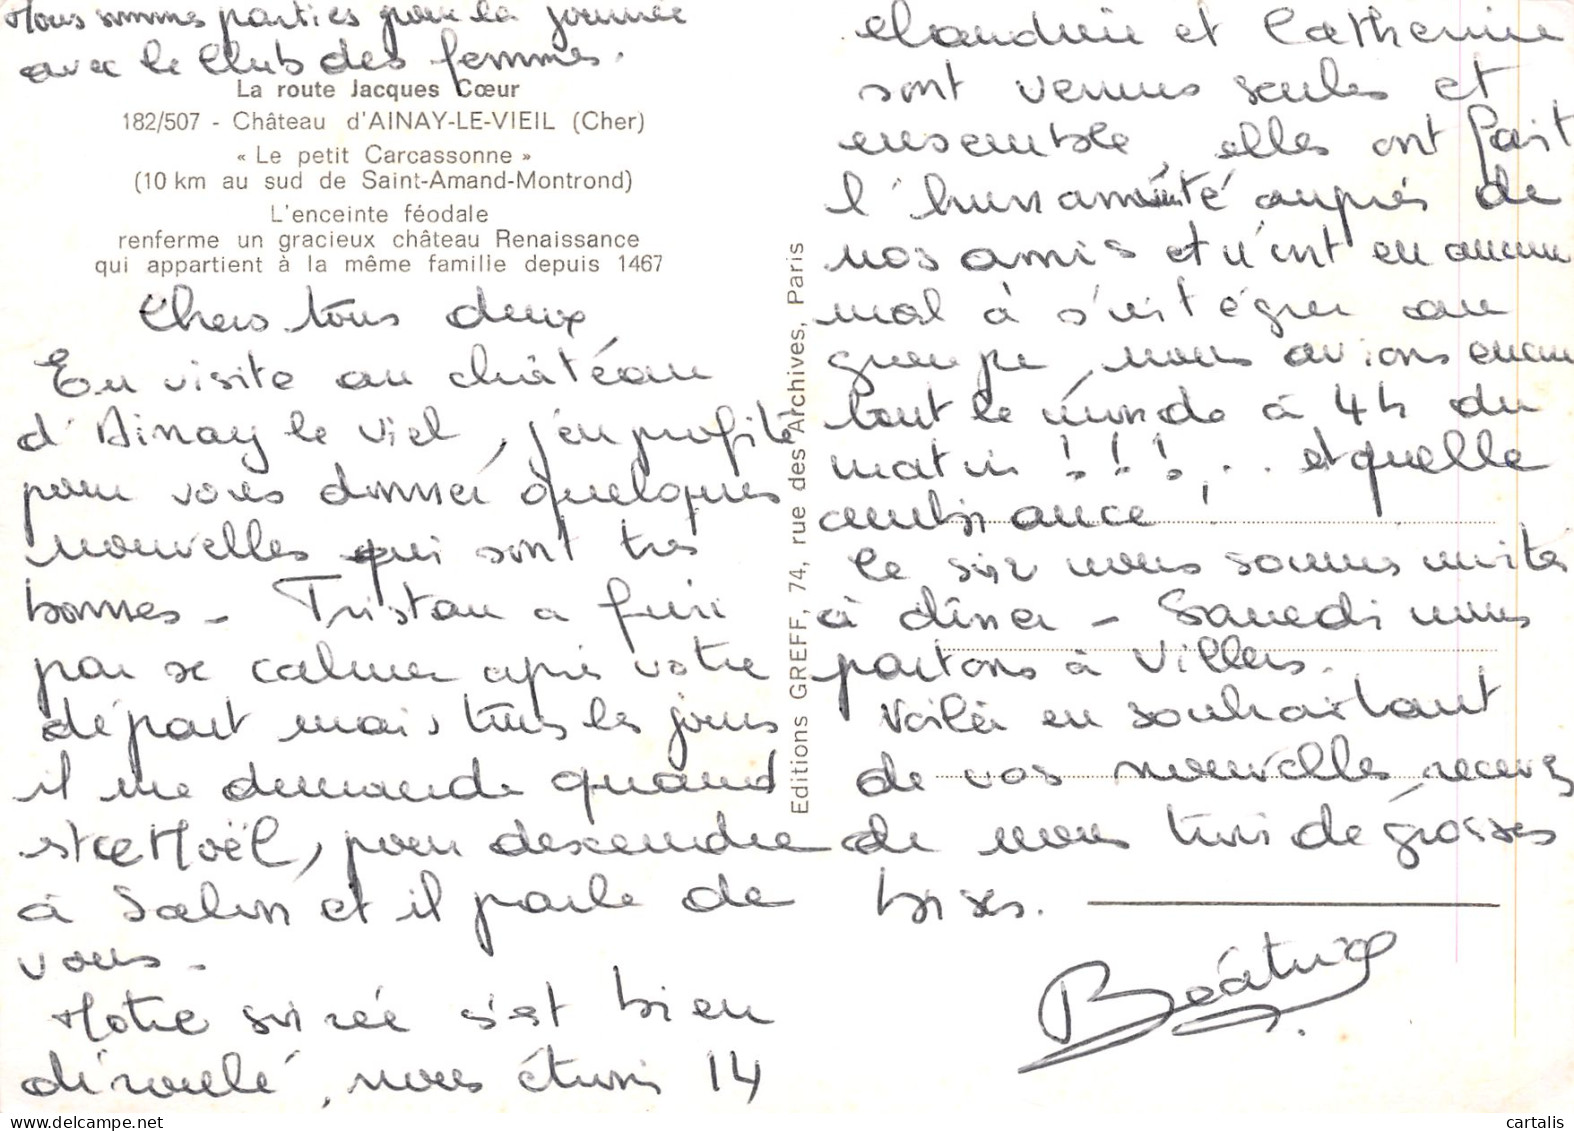 Nous sommes parties pour la journée
avec le Club des femmes.
La route Jacques Cœur
182/507 - Château d'AINAY-LE-VIEIL (Cher)
« Le petit Carcassonne »
(10 km au sud de Saint-Amand-Montrond)
L'enceinte féodale
renferme un gracieux château Renaissance
qui appartient à la même famille depuis 1467
Chers tous deux
En visite au château
d'Ainay le Viel, j'en profite
pour vous donner quelques
nouvelles qui sont très
bonnes - Tristan a fini
par se calmer après votre
départ mais tous les jours
il me demande quand
est ce Noël, pour descendre
à Salon et il parle de
vous -
Notre soirée s'est bien
déroulé, nous étions 14
Editions GREFF, 74, rue des Archives, Paris
Claudine et Catherine
sont venues seules et
ensemble, elles ont fait
l'humanité auprès de
nos amis et n'ont eu aucun
mal à s'intégrer au
groupe, nous avions encore
tout le monde à 4h du
matin !!!... et quelle
ambiance !
Ce soir nous sommes invités
à dîner - Samedi nous
partons à Villers.
Voilà en souhaitant
de vos nouvelles recevez
de nous trois de grosses
bises.
Béatrice
cartalis